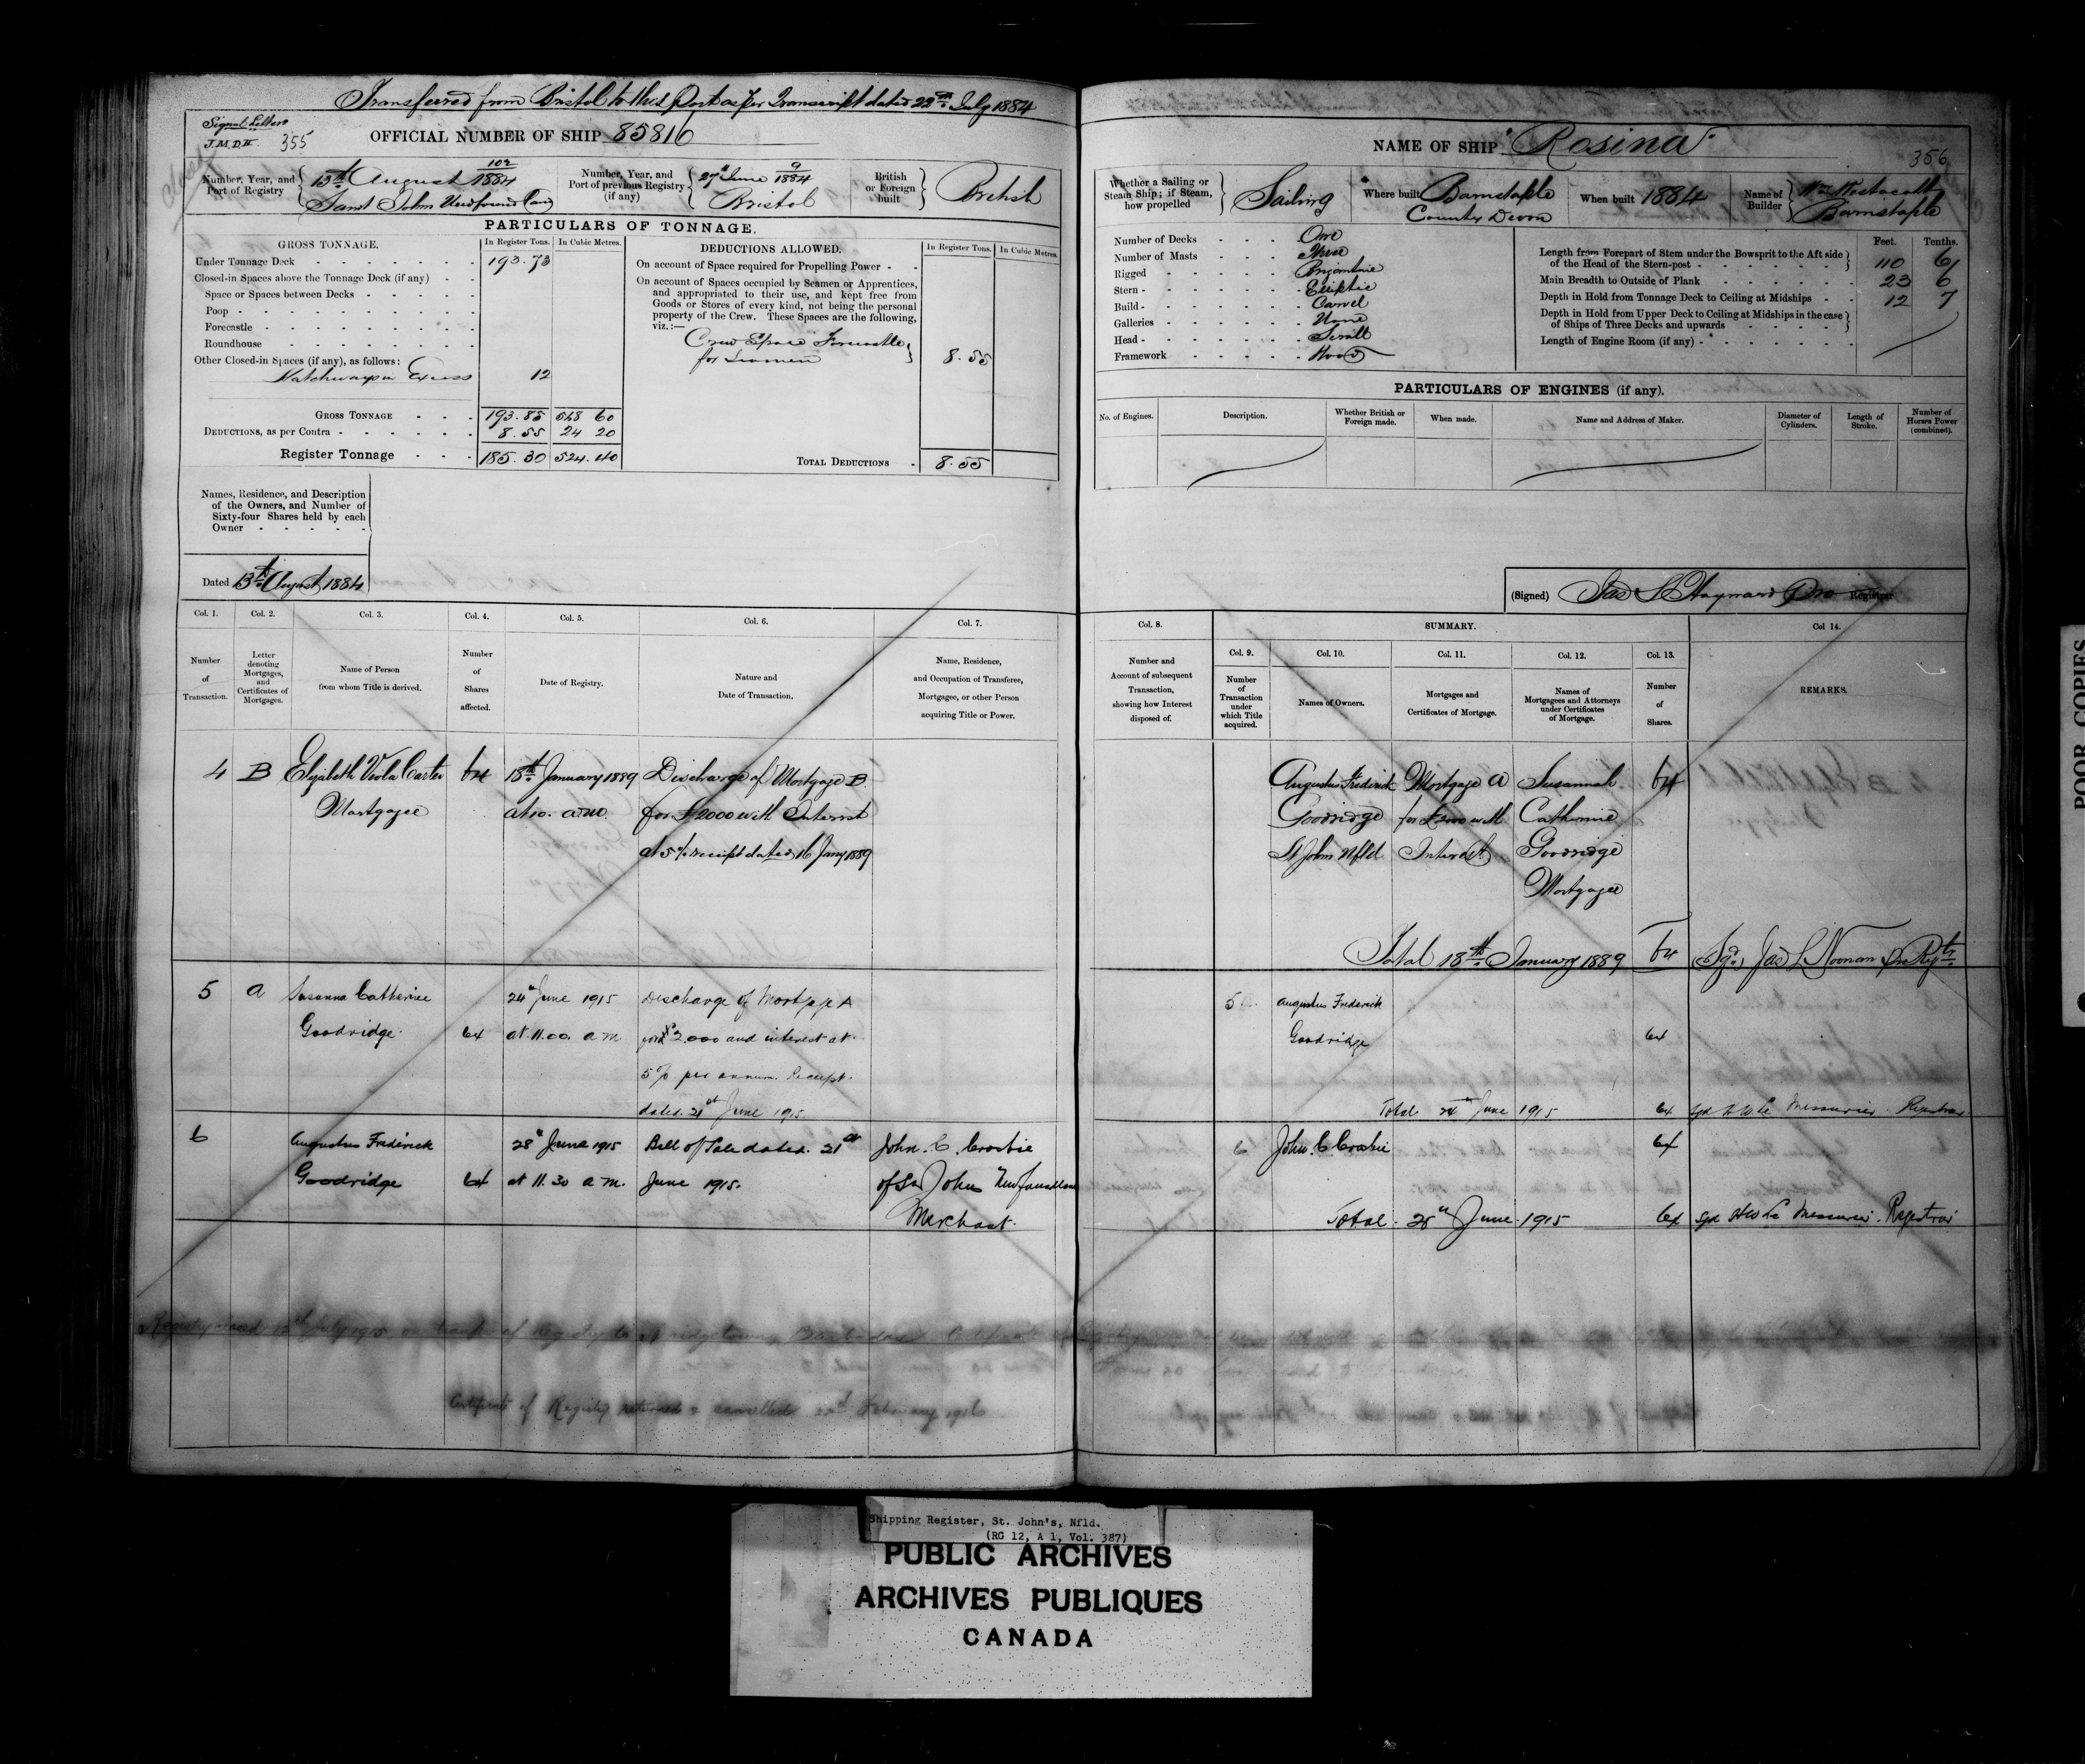 Transferred from Bristol to this Port as per Transcript dated 22nd July 1884
Signal Letters
355
OFFICIAL NUMBER OF SHIP 85816
Number, Year, and Port of Registry
102
1884
13th August
Saint John Newfoundland
Number, Year, and Port of previous Registry (if any)
9
27th June 1884
Bristol
British or Foreign built
British
PARTICULARS OF TONNAGE.
GROSS TONNAGE.
In Register Tons.
In Cubic Metres.
Under Tonnage Deck 193.73
Closed-in Spaces above the Tonnage Deck (if any)
Space or Spaces between Decks
Poop
Forecastle
Roundhouse
Other Closed-in Spaces (if any), as follows:
Hatchways in Excess 12
GROSS TONNAGE 193.85 548 60
DEDUCTIONS, as per Contra 8.55 24 20
Register Tonnage 185.30 524.40
DEDUCTIONS ALLOWED.
In Register Tons.
In Cubic Metres.
On account of Space required for Propelling Power
On account of Spaces occupied by Seamen or Apprentices,
and appropriated to their use, and kept free from
Goods or Stores of every kind, not being the personal
property of the Crew. These Spaces are the following,
viz.:—
Crew Space Forecastle
for Seamen 8.55
TOTAL DEDUCTIONS 8.55
Names, Residence, and Description
of the Owners, and Number of
Sixty-four Shares held by each
Owner
Dated 13th August 1884
Col. 1. Col. 2. Col. 3. Col. 4. Col. 5. Col. 6. Col. 7.
Number of Transaction.
Letter denoting Mortgages, and Certificates of Mortgages.
Name of Person from whom Title is derived.
Number of Shares affected.
Date of Registry.
Nature and Date of Transaction.
Name, Residence, and Occupation of Transferee, Mortgagee, or other Person acquiring Title or Power.
4 B Elizabeth Viola Carter 64 18th January 1889 Discharge of Mortgage B
Mortgagee at 10. a.m. for £2000 with Interest
at 5% receipt dated 16 Jany 1889
5 A Susanna Catherine 24th June 1915 Discharge of Mortgage A
Goodridge. 64 at 11.00. a m. for £2.000 and interest at
5% per annum. Receipt.
dated 21st June 1915.
6 Augustus Frederick 28th June 1915 Bill of Sale dated. 21st John. C. Crosbie
Goodridge 64 at 11.30 a m. June 1915. of St Johns Newfoundland
Merchant.
Certificate of Registry returned & cancelled 22nd February 1916
NAME OF SHIP "Rosina"
356
Whether a Sailing or Steam Ship; if Steam, how propelled
Sailing
Where built
Barnstaple
County Devon
When built 1884
Name of Builder
Wm Westacott
Barnstaple
Number of Decks One
Number of Masts Three
Rigged
Stern Elliptic
Build Carvel
Galleries None
Head Scroll
Framework Wood
Feet. Tenths.
Length from Forepart of Stem under the Bowsprit to the Aft side
of the Head of the Stern-post 110 6
Main Breadth to Outside of Plank 23 6
Depth in Hold from Tonnage Deck to Ceiling at Midships 12 7
Depth in Hold from Upper Deck to Ceiling at Midships in the case
of Ships of Three Decks and upwards
Length of Engine Room (if any)
PARTICULARS OF ENGINES (if any).
No. of Engines.
Description.
Whether British or Foreign made.
When made.
Name and Address of Maker.
Diameter of Cylinders.
Length of Stroke.
Number of Horses Power (combined).
(Signed) Jas S Hayward Pro Registrar
Col. 8.
SUMMARY.
Col 14.
Col. 9. Col. 10. Col. 11. Col. 12. Col. 13.
Number and Account of subsequent Transaction, showing how Interest disposed of.
Number of Transaction under which Title acquired.
Names of Owners.
Mortgages and Certificates of Mortgage.
Names of Mortgagees and Attorneys under Certificates of Mortgage.
Number of Shares.
REMARKS.
Augustus Frederick Mortgage A Susannah 64
Goodridge for £2000 with Catherine
St Johns Nfld Interest Goodridge
Mortgagee
Total 18th January 1889 64 (Sgd) Jas L Noonan Pro Regtr.
5 Augustus Frederick
Goodridge 64
Total 24th June 1915 64 Sgd H W Le Messurier Registrar
6 John. C Crosbie 64
Total. 28th June. 1915 64 Sgd H W Le Messurier. Registrar
POOR COPIES
Shipping Register, St. John's, Nfld.
(RG 12, A 1, Vol. 387)
PUBLIC ARCHIVES
ARCHIVES PUBLIQUES
CANADA